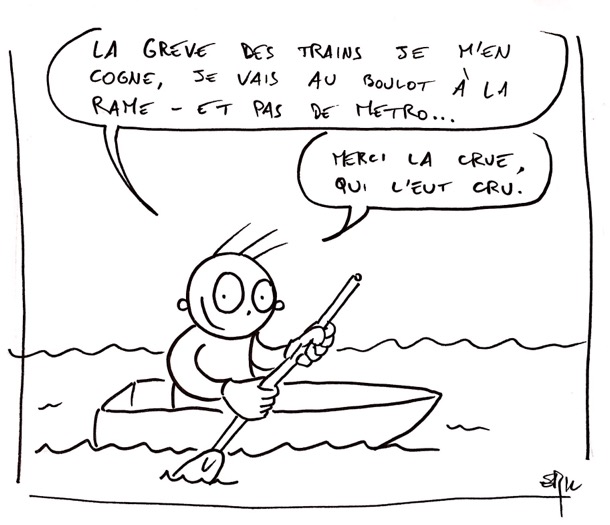 LA GREVE DES TRAINS JE M'EN
COGNE, JE VAIS AU BOULOT À LA
RAME - ET PAS DE METRO...
MERCI LA CRUE,
QUI L'EUT CRU.